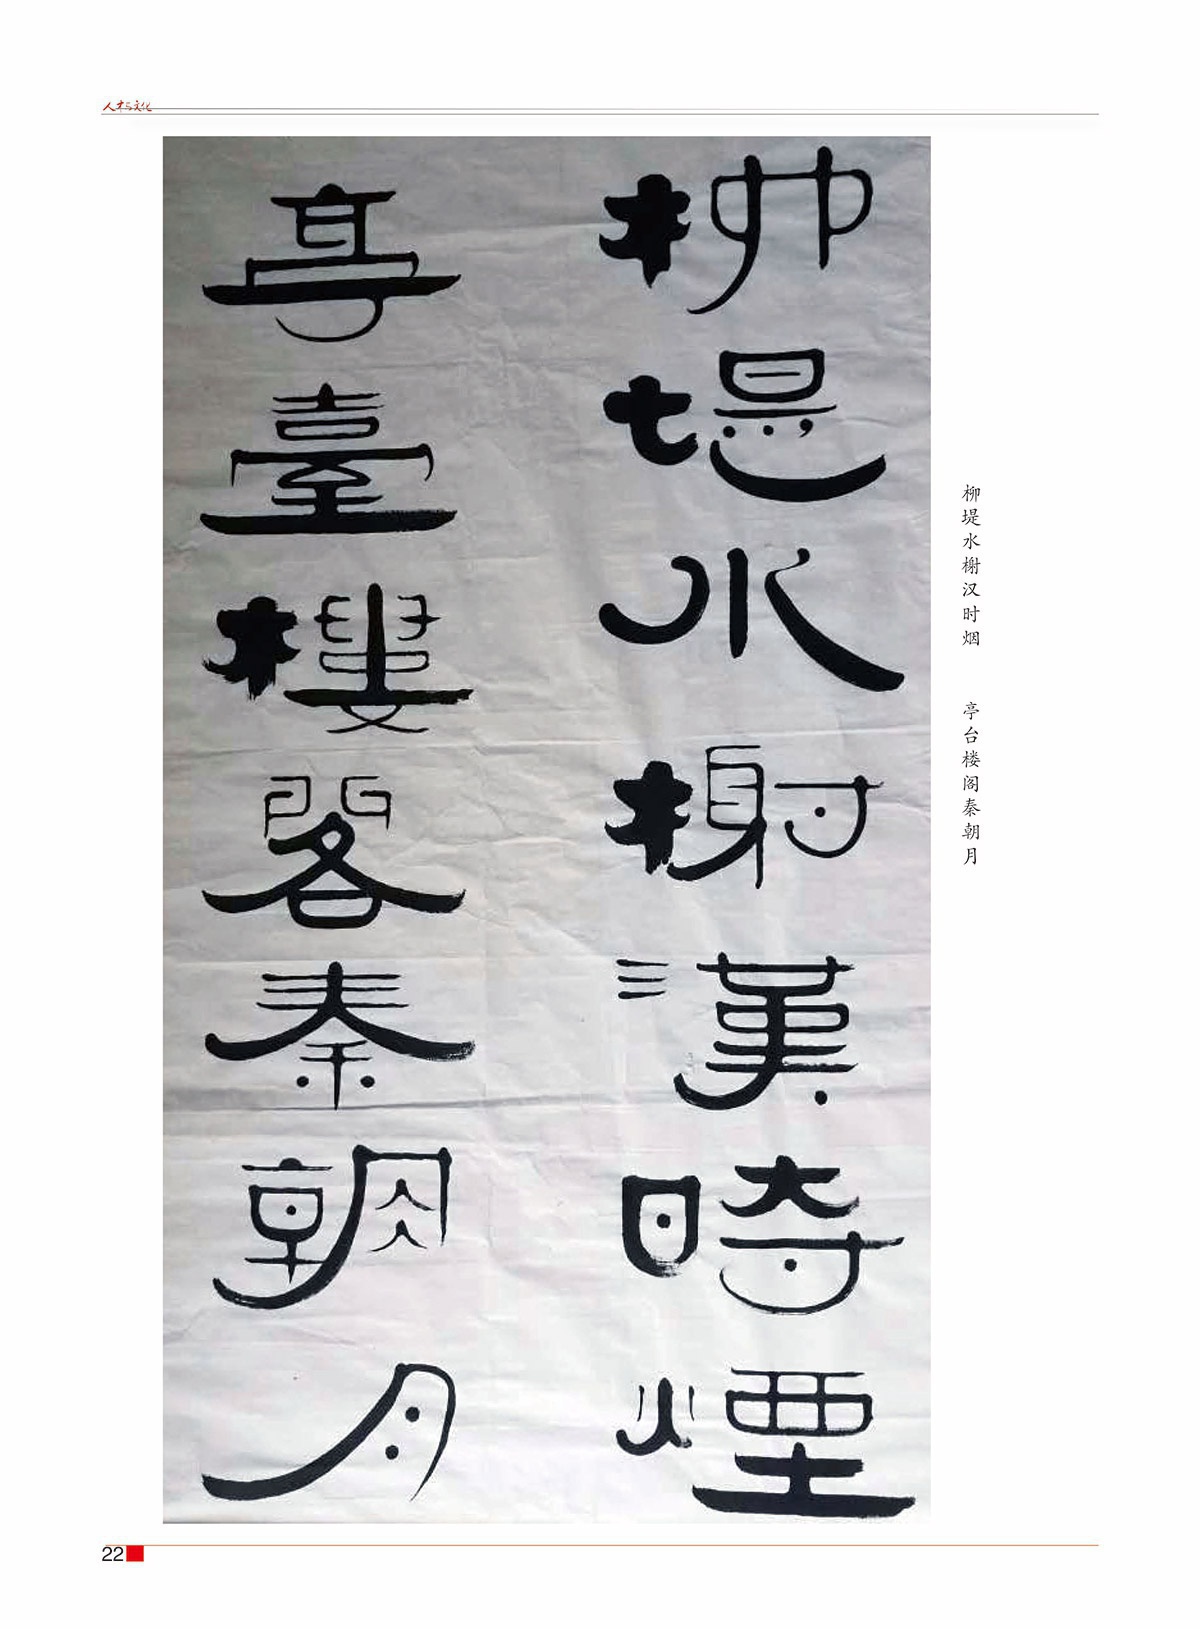 人才与文化
柳堤水榭漢時煙
亭臺樓閣秦朝月
柳堤水榭汉时烟 亭台楼阁秦朝月
22